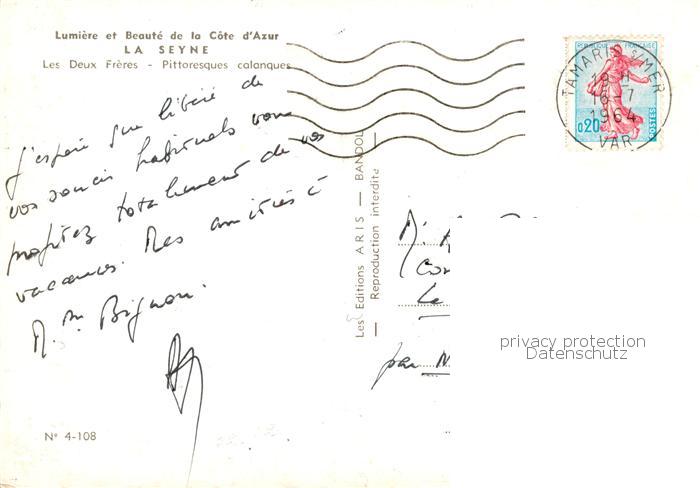 Lumière et Beauté de la Côte d'Azur
LA SEYNE
Les Deux Frères - Pittoresques calanques
j'espère que libéré de
vos soucis habituels vous
profitez totalement de vos
vacances. Mes amitiés à
M. Mme Bignon.
N° 4-108
Les Editions ARIS — BANDOL
— Reproduction interdite —
REPUBLIQUE FRANÇAISE
0,20
POSTES
TAMARIS s/MER
18 H
16-7
1964
VAR
M.
Con
Le
par N
privacy protection
Datenschutz